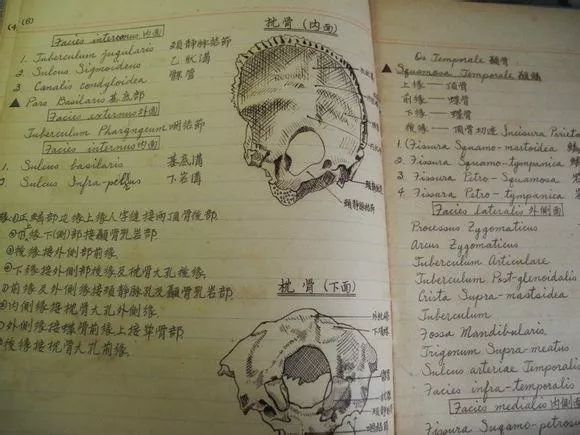 (6)
Facies internus 內面
1. Tuberculum jugularis 頸静脉結節
2. Sulcus Sigmoideus 乙狀溝
3. Canalis condyloidea 髁管
▲ Pars Basilaris 基底部
Facies externus 外面
Tuberculum Pharyngeum 咽結節
Facies internus 內面
1. Sulcus basilaris 基底溝
2. Sulcus Infra- 下岩溝
正鱗部
上緣人字縫接兩頂骨後部
下(側)部接顳骨乳岩部
後緣接外側部前緣.
下緣接外側部後緣及枕骨大孔後緣.
前緣及外側緣接頸静脉孔及顳骨乳岩部.
內側緣接枕骨大孔外側緣.
外側緣接蝶骨前緣上接
後緣接枕骨大孔前緣.
枕骨 (內面)
頸静脉結節
枕骨 (下面)
Os Temporale 顳骨
▲ Squamosa Temporale 顳鱗
上緣 — 頂骨
前緣 — 蝶骨
下緣 — 蝶骨
後緣 — 頂骨切迹 Incisura Parieta
1. Fissura Squamo-mastoidea
2. Fissura Squamo-tympanica
3. Fissura Petro-Squamosa
4. Fissura Petro-tympanica
Facies lateralis 外側面
Processus Zygomaticus
Arcus Zygomaticus
Tuberculum Articulare
Tuberculum Post-glenoidalis
Crista Supra-mastoidea
Tuberculum
Fossa Mandibularis
Trigonum Supra-meatus
Sulcus arteriae Temporalis
Facies infra-temporalis
Facies medialis 內側面
Fissura Squamo-petrosu